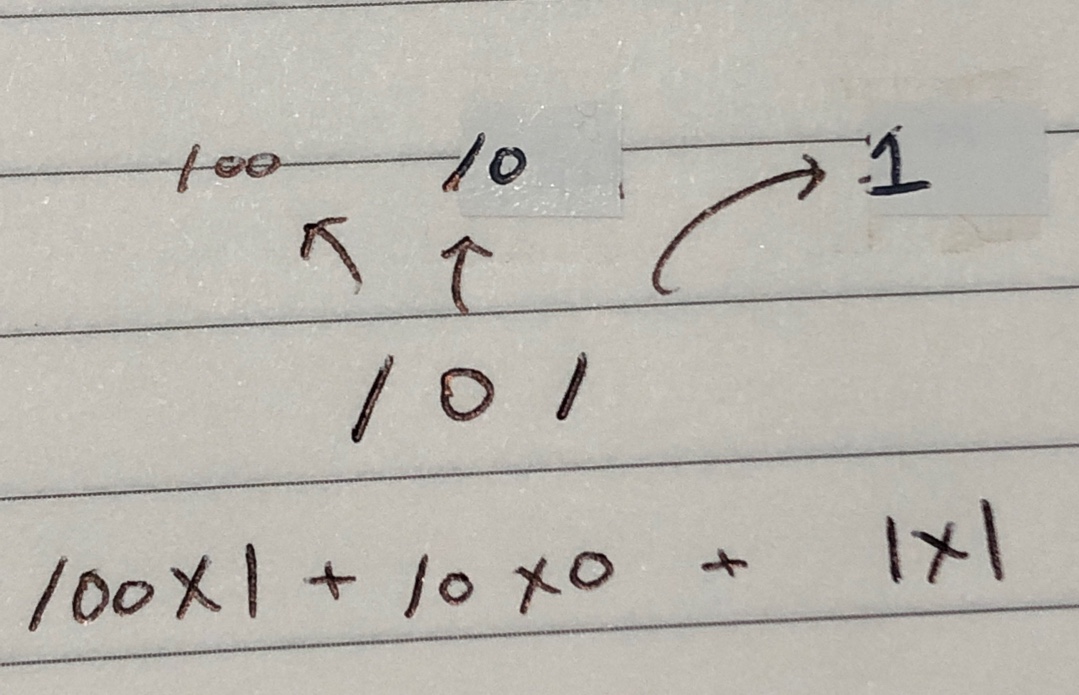 100 10 1
1 0 1
100x1 + 10x0 + 1x1